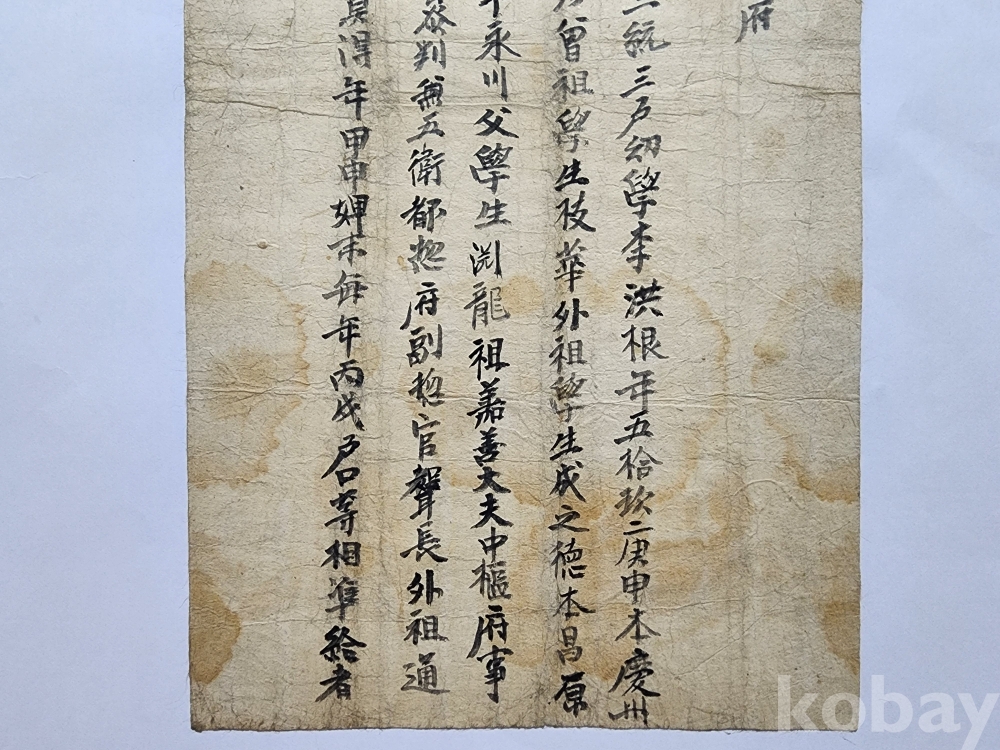 府
統三戶幼學李洪根年五拾玖庚申本慶州
曾祖學生枝華外祖學生成之德本昌原
永川父學生淵龍祖嘉善大夫中樞府事
判兼五衛都摠府副摠官聲長外祖通
得年甲申婢末每年丙戌戶口等相準給者
kobay